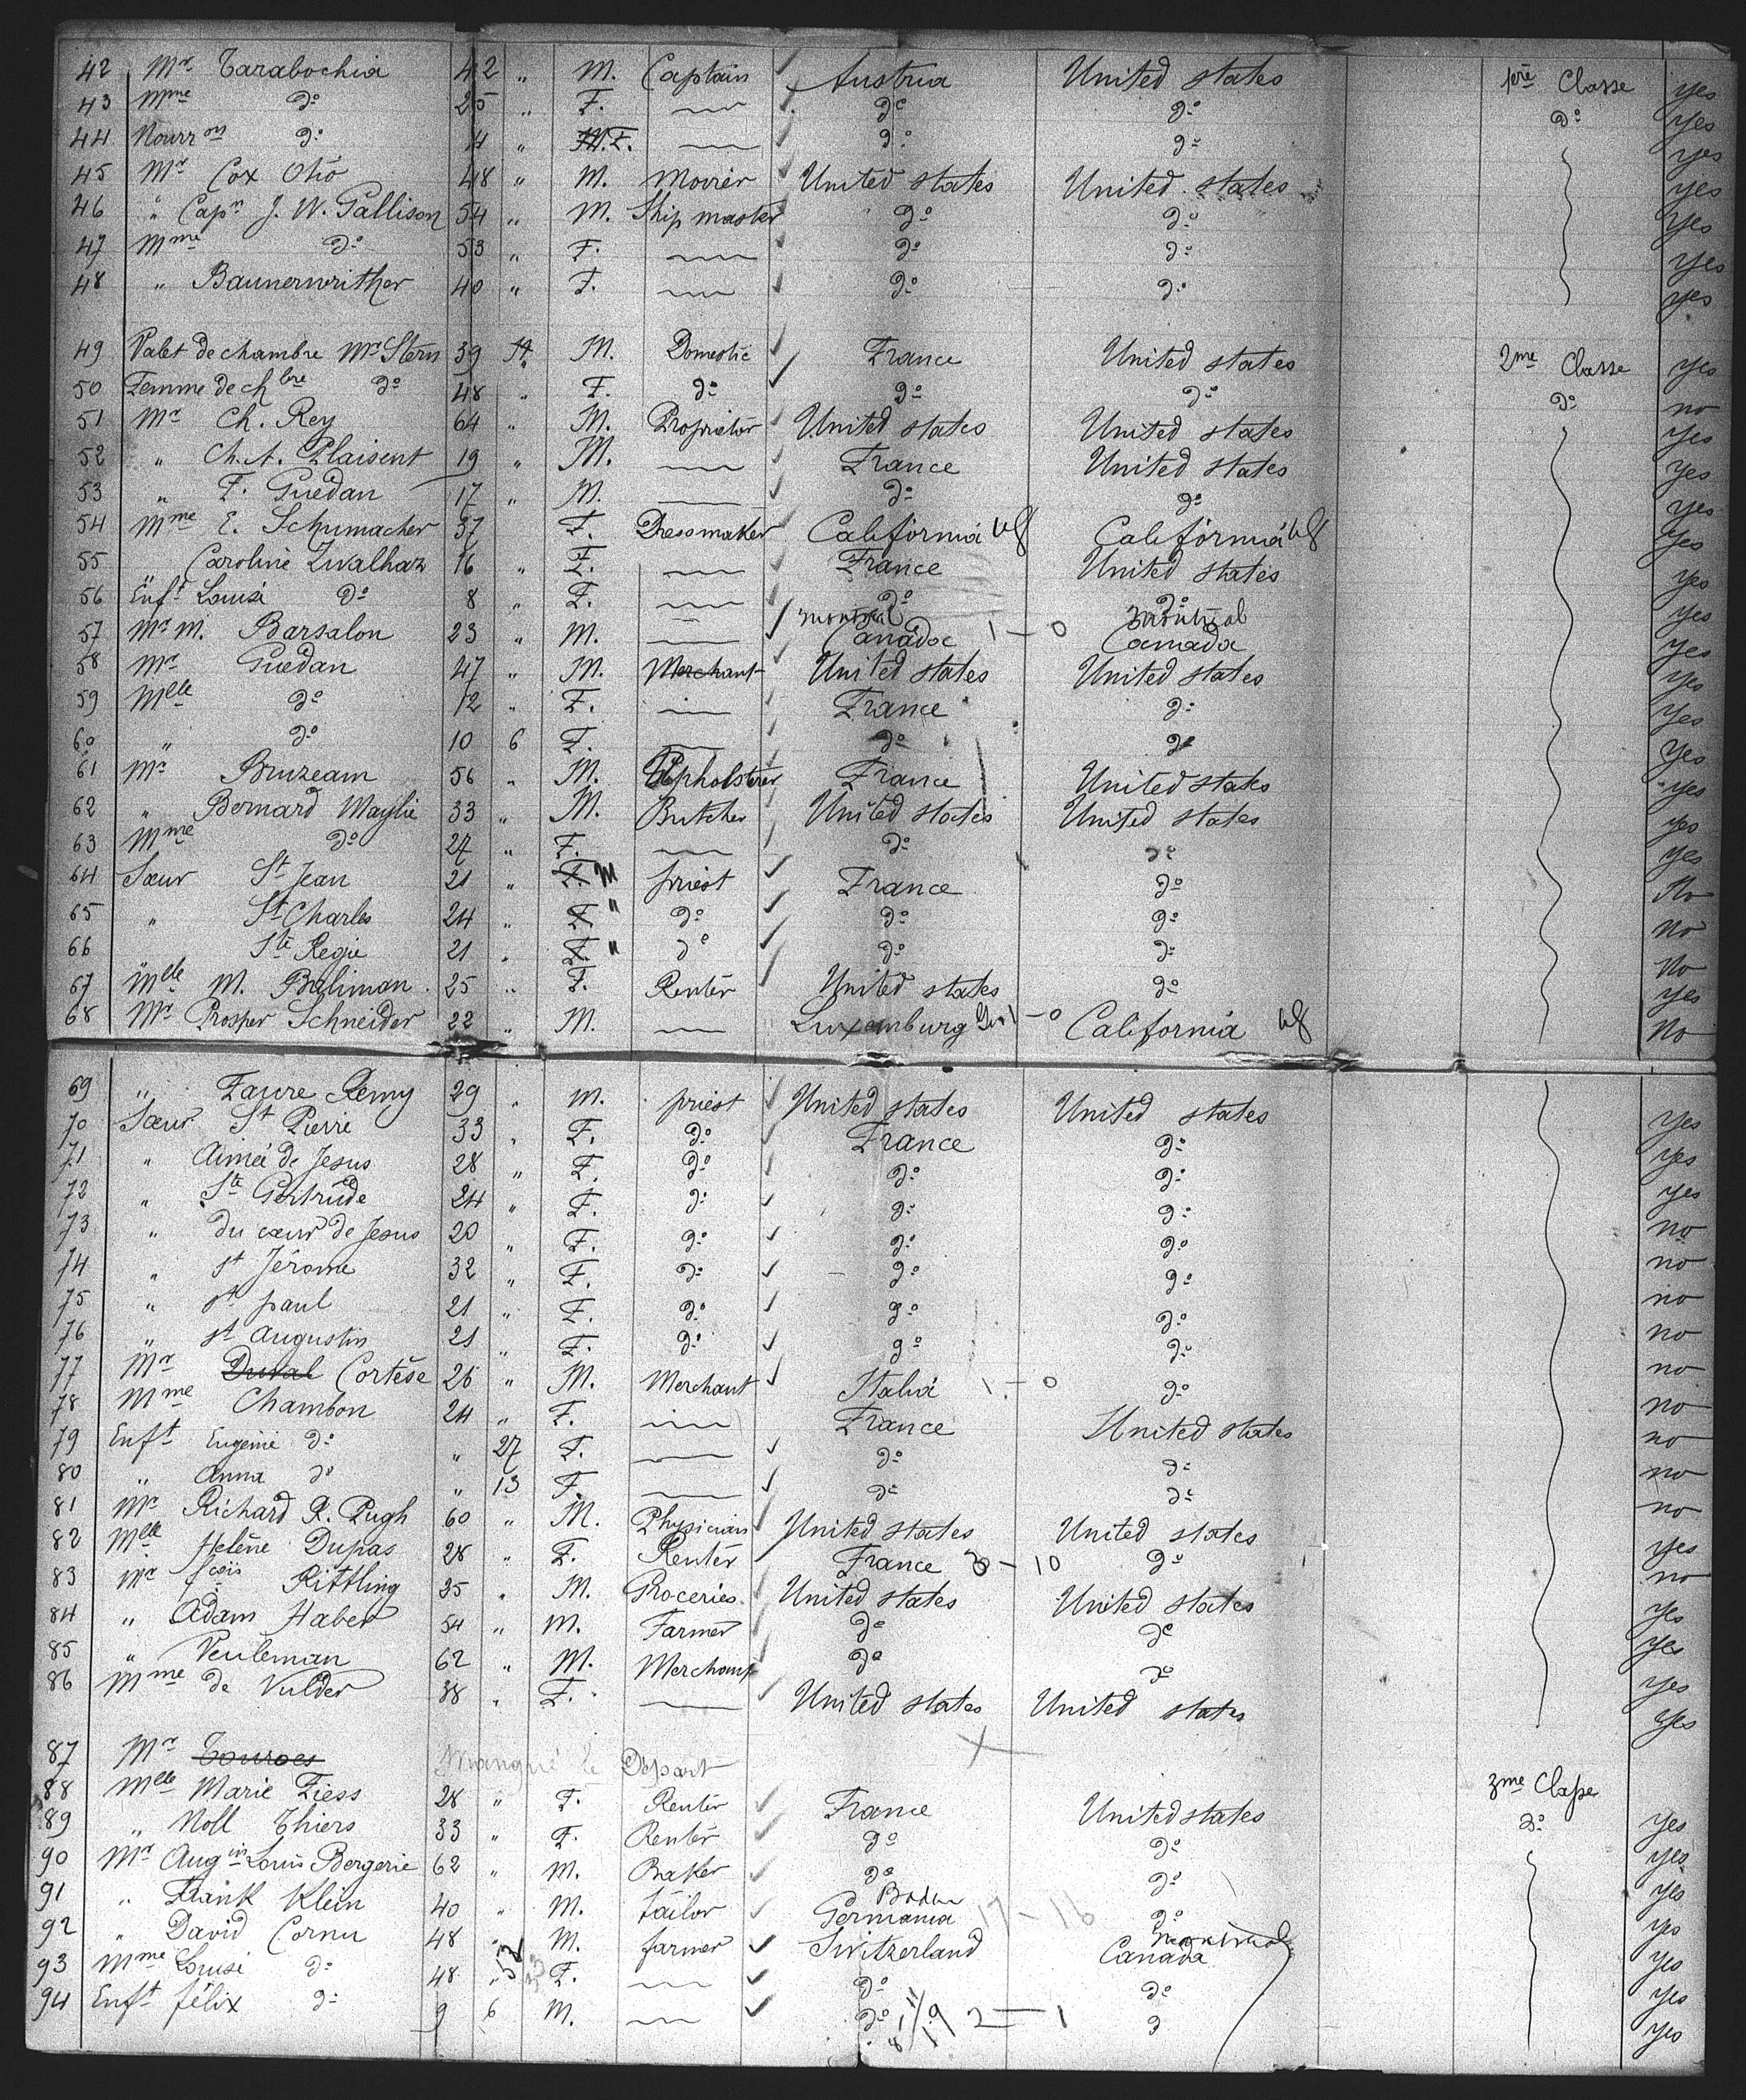 42 Mr Tarabochia 42 " M. Captain Austria United states 1ère Classe yes
43 Mme do 25 " F. — do do do yes
44 Nourron do 4 " F. — do do yes
45 Mr Cox Otto 48 " M. United states United states yes
46 " Capn J. W. Gallison 54 " M. Ship master do do yes
47 Mme do 53 " F. — do do yes
48 " Baunerwrither 40 " F. — do do yes
49 Valet de chambre Mr Stern 39 " M. Domestic France United states 2me Classe yes
50 Femme de chbre do 48 " F. do do do do no
51 Mr Ch. Rey 64 " M. Proprietor United states United states yes
52 " Ch. A. Plaisent 19 " M. — France United states yes
53 " F. Guedan 17 " M. — do do yes
54 Mme E. Schumacher 37 F. Dressmaker California California yes
55 Caroline Zwalhaz 16 " F. — France United states yes
56 Enft Louise do 8 " F. — do do yes
57 Mr M. Barsalon 23 " M. — montreal Canada 1 — 0 montreal Canada yes
58 Mr Guedan 47 " M. Merchant United states United states yes
59 Melle do 12 " F. — France do yes
60 " do 10 6 F. — do do yes
61 Mr Bruzeam 56 " M. Upholsterer France United states yes
62 " Bernard Maylie 33 " M. Butcher United states United states yes
63 Mme do 27 " F. — do do yes
64 Sœur St Jean 21 " F. M priest France do No
65 " St Charles 24 " F " do do do no
66 Ste Regie 21 " F. " do do do No
67 Melle M. Buliman 25 " F. Renter United states do yes
68 Mr Prosper Schneider 22 " M. — Luxemburg 1 — 0 California No
69 " Faure Remy 29 " M. priest United states United states yes
70 Sœur St Pierre 33 " F. do France do yes
71 " Aimée de Jesus 28 " F. do do do yes
72 " Ste Gertrude 24 " F. do do do no
73 " du cœur de Jesus 20 " F. do do do no
74 " st Jérome 32 " F. do do do no
75 " st paul 21 " F. do do do no
76 " st Augustin 21 " F. do do do no
77 Mr Duval Cortèse 26 " M. Merchant Italia 1 — 0 do no
78 Mme Chambon 24 " F. — France United states no
79 Enft Eugenie do " 27 F. — do do no
80 " Anna do " 13 F. — do do no
81 Mr Richard R. Pugh 60 " M. Physician United states United states yes
82 Melle Helène Dupas 28 " F. Renter France — 10 do no
83 Mr Rittling 25 " M. Groceries United states United states yes
84 " Adam Haber 54 " M. Farmer do do yes
85 " Peuleman 62 " M. Merchant do do yes
86 Mme de Vulder 38 " F. — United states United states yes
87 Mr Manqué le Depart
88 Melle Marie Fiess 28 " F. Renter France United states 3me Classe yes
89 " Noll Thiers 33 " F. Renter do do do yes
90 Mr Augin Louis Bergerie 62 " M. Baker do do yes
91 " Frank Klein 40 " M. tailor Baden Germania 17 — 16 do yes
92 " David Cornu 48 " M. farmer Switzerland montreal Canada yes
93 Mme Louise do 48 " F. — do do yes
94 Enft félix do 9 6 M. — do 2 — 1 do yes